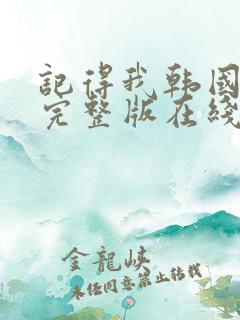 記得我韩國
完整版在綫
金龍峡
未经同意禁止转载